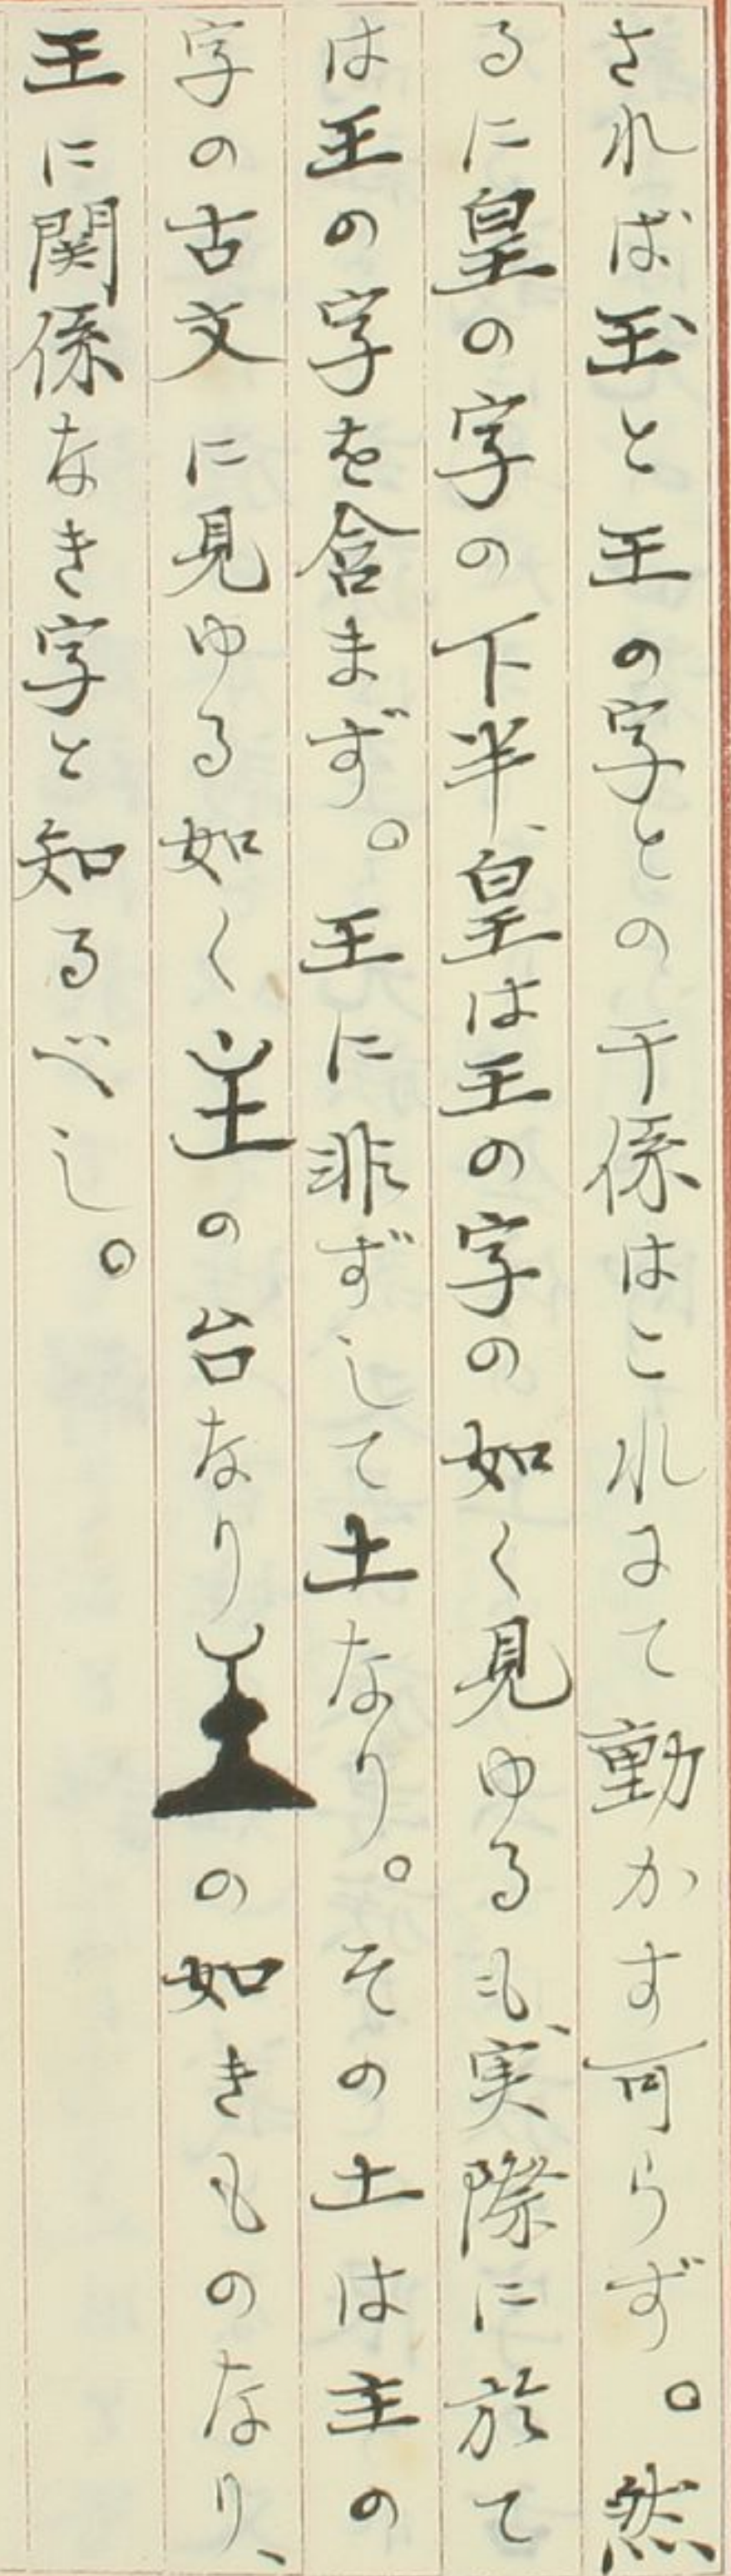 されば玉と王の字との干係はこれにて動かす可らず。然
るに皇の字の下半、皇は王の字の如く見ゆるも、実際に於て
は王の字を含まず。王に非ずして土なり。その土は主の
字の古文に見ゆる如くの台なりの如きものなり、
王に関係なき字と知るべし。